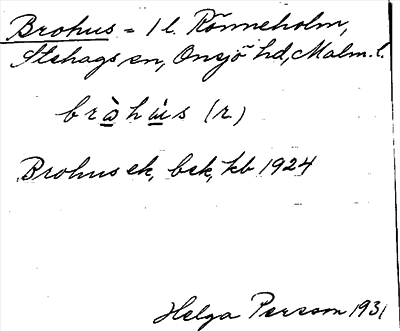 Brohus = 1 l. Rönneholm,
Stehags sn, Onsjö hd, Malm. l.
bràhùs (r)
Brohus ek, bek, kb 1924
Helga Persson 1931